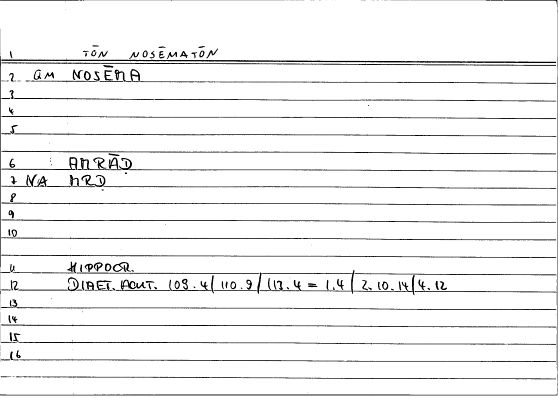 1 TŌN NOSĒMATŌN
2 GM NOSĒMA
3
4
5
6 AMRĀḌ
7 NA MRḌ
8
9
10
11 HIPPOCR.
12 DIAET. ACUT. 109.4/ 110.9/ 113.4 = 1.4/ 2.10.14/ 4.12
13
14
15
16